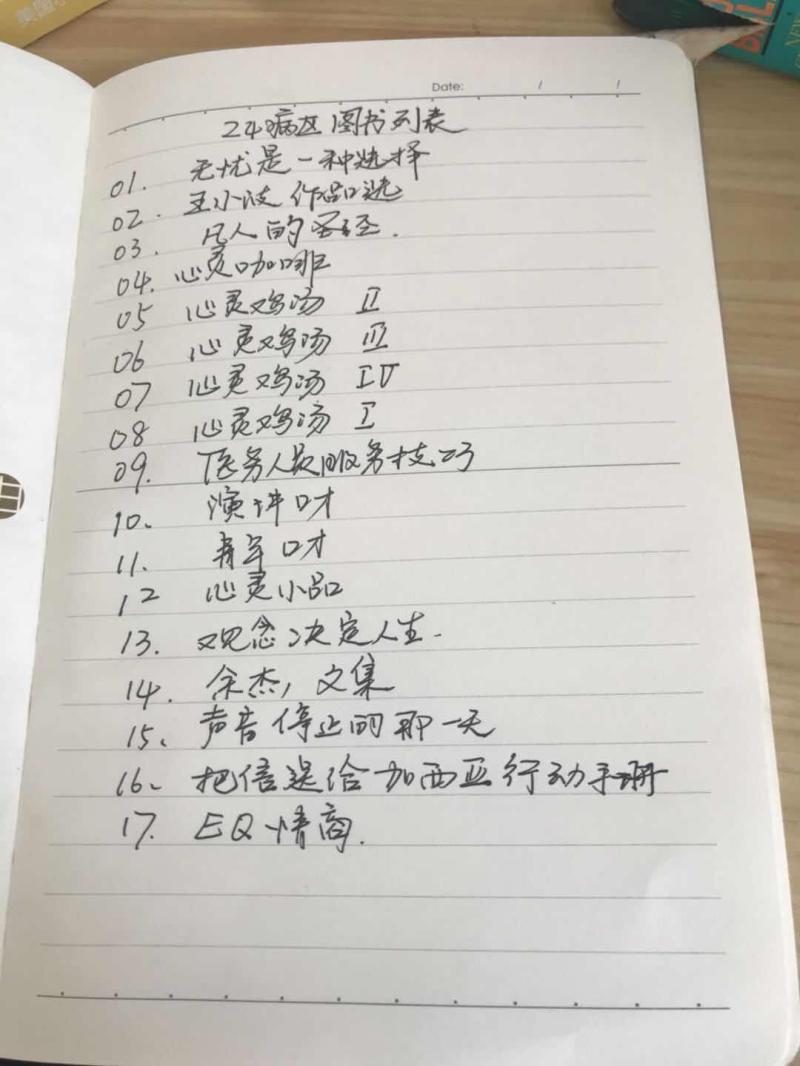 美国
Date: / /
24病区图书列表
01. 无忧是一种选择
02. 王小波作品选
03. 凡人的圣经.
04. 心灵咖啡
05 心灵鸡汤 II
06 心灵鸡汤 III
07 心灵鸡汤 IV
08 心灵鸡汤 I
09. 医务人员服务技巧
10、 演讲口才
11. 青年口才
12 心灵小品
13. 观念决定人生.
14. 余杰,文集
15、声音停止的那一天
16、把信送给加西亚行动手册
17. EQ情商.